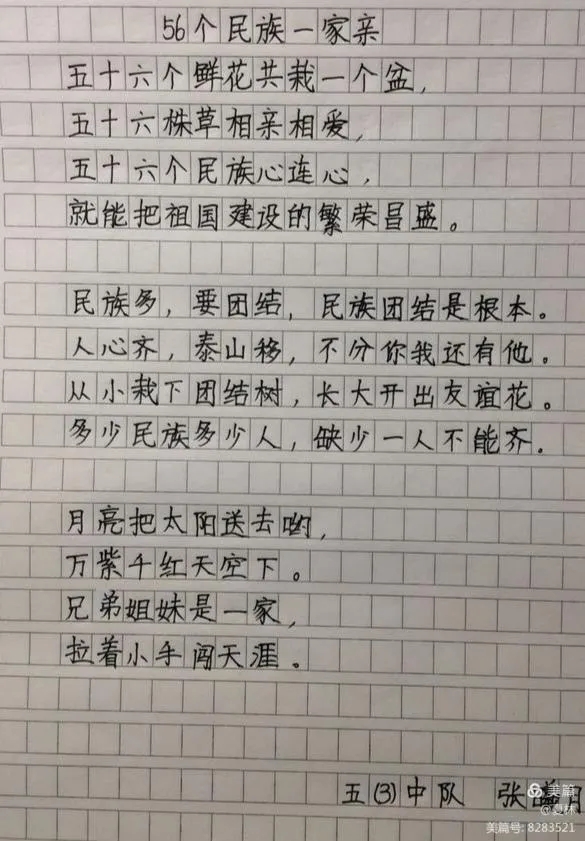 56个民族一家亲
五十六个鲜花共栽一个盆,
五十六株草相亲相爱,
五十六个民族心连心,
就能把祖国建设的繁荣昌盛。
民族多,要团结,民族团结是根本。
人心齐,泰山移,不分你我还有他。
从小栽下团结树,长大开出友谊花。
多少民族多少人,缺少一人不能齐.
月亮把太阳送去哟,
万紫千红天空下。
兄弟姐妹是一家,
拉着小手闯天涯。
五(3)中队 张月
美篇
@夏林
美篇号: 8283521